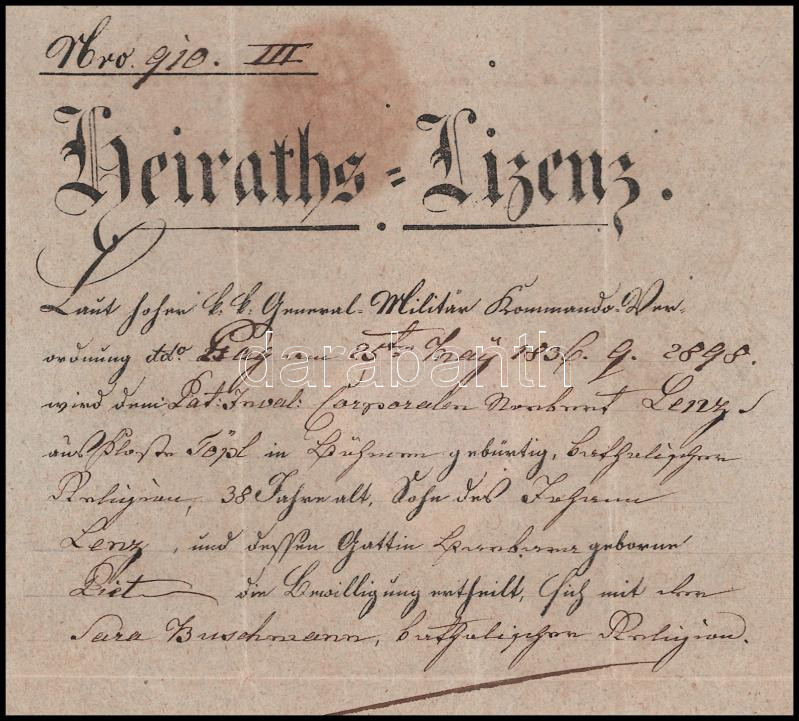 Nro. 910. III
Heiraths-Lizenz.
Laut hoher k. k: General-Militär Kommando-Ver-
ordnung ddo Prag am 25ten May 1836. 2898.
wird dem Pat: Inval: Corporalen Norbert Lenz
aus Kloster Töpl in Böhmen gebürtig, katholischer
Religion, 38 Jahre alt, Sohn des Johann
Lenz, und dessen Gattin Barbara geborne
die Bewilligung ertheilt, sich mit der
Sara Buschmann, katholischer Religion.
darabanth